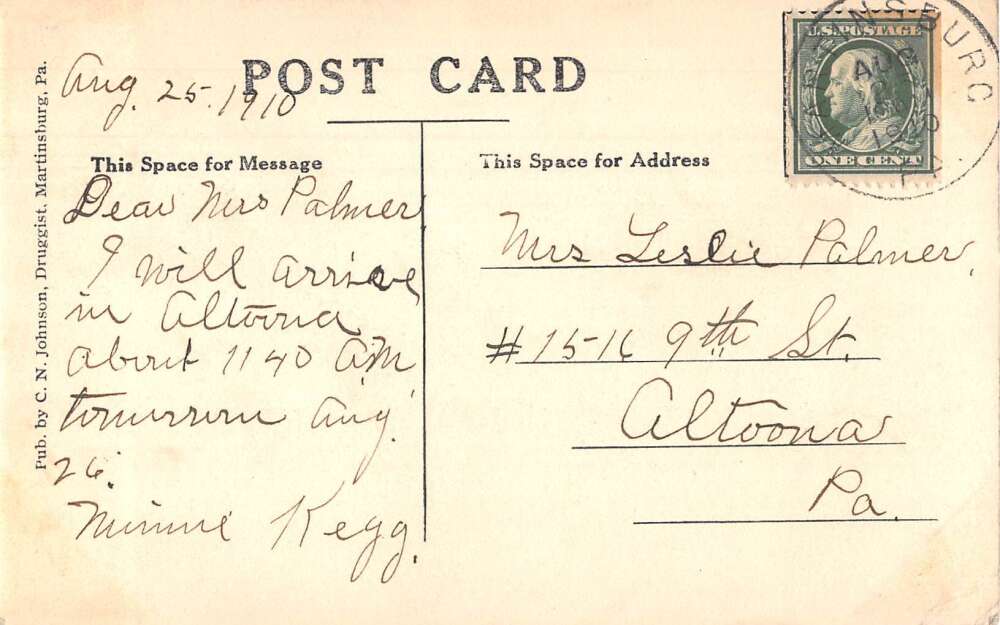 POST CARD
Aug. 25. 1910
This Space for Message
Dear Mrs Palmer
I will arrive
in Altoona
about 1140 A.M.
tomorrow Aug.
26.
Minnie Kegg.
This Space for Address
Mrs Leslie Palmer,
# 1516 9th St.
Altoona
Pa.
Pub. by C. N. Johnson, Druggist, Martinsburg, Pa.
U.S. POSTAGE
ONE CENT
MARTINSBURG
AUG
1910
PA.